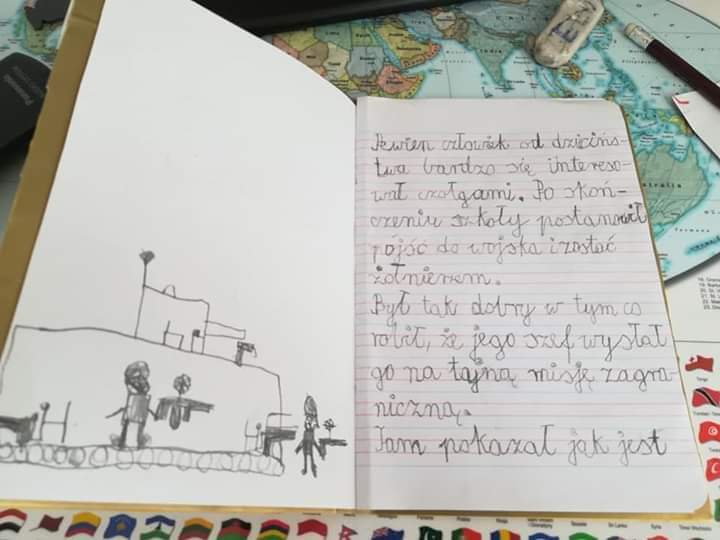 Pewien człowiek od dziecińs-
twa bardzo się intereso-
wał czołgami. Po skoń-
czeniu szkoły postanowił
pójść do wojska i zostać
żołnierzem.
Był tak dobry w tym co
robił, że jego szef wysłał
go na tajną misję zagra-
niczną.
Tam pokazał jak jest